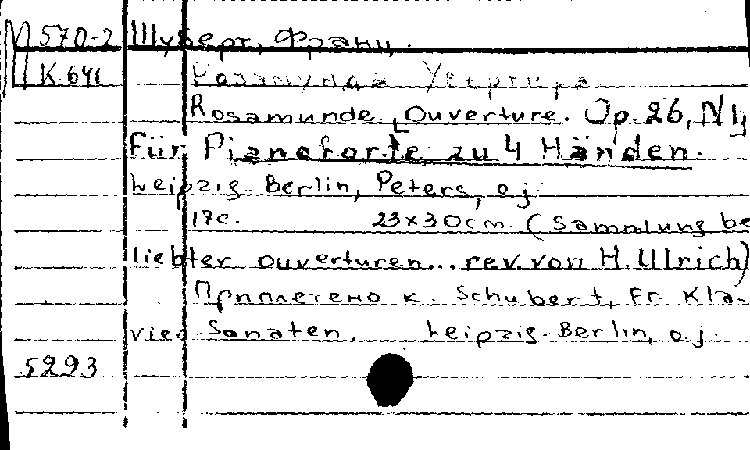 М 570-2 Шуберт, Франц.
К 641 Розамунда Увертюра
Rosamunde Ouverture. Op. 26, N1,
für Pianoforte zu 4 Händen.
Leipzig-Berlin, Peters, o.j.
17c. 23x30cm (Sammlung be-
liebter ouverturen... rev. von H. Ulrich)
Приплетено к. Schubert, Fr. Kla-
vier Sonaten. Leipzig-Berlin, o.j.
5293